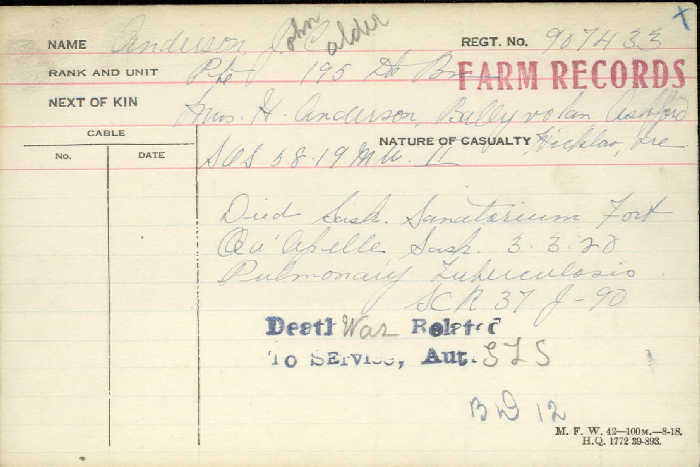 NAME Anderson J. C. John Calder REGT. No. 907433
RANK AND UNIT Pte 195 Bn FARM RECORDS
NEXT OF KIN H. Anderson, Ashford
CABLE NATURE OF CASUALTY Wicklow, Ire
No. DATE SOS 8-19
Died Sask. Sanatorium Fort
Qu'Apelle Sask. 3.3.20
Pulmonary Tuberculosis
SCR 37 J-90
Death Was Related
To Service, Aut. SLS
BD 12
M. F. W. 42—100M.—8-18.
H.Q. 1772 39-893.